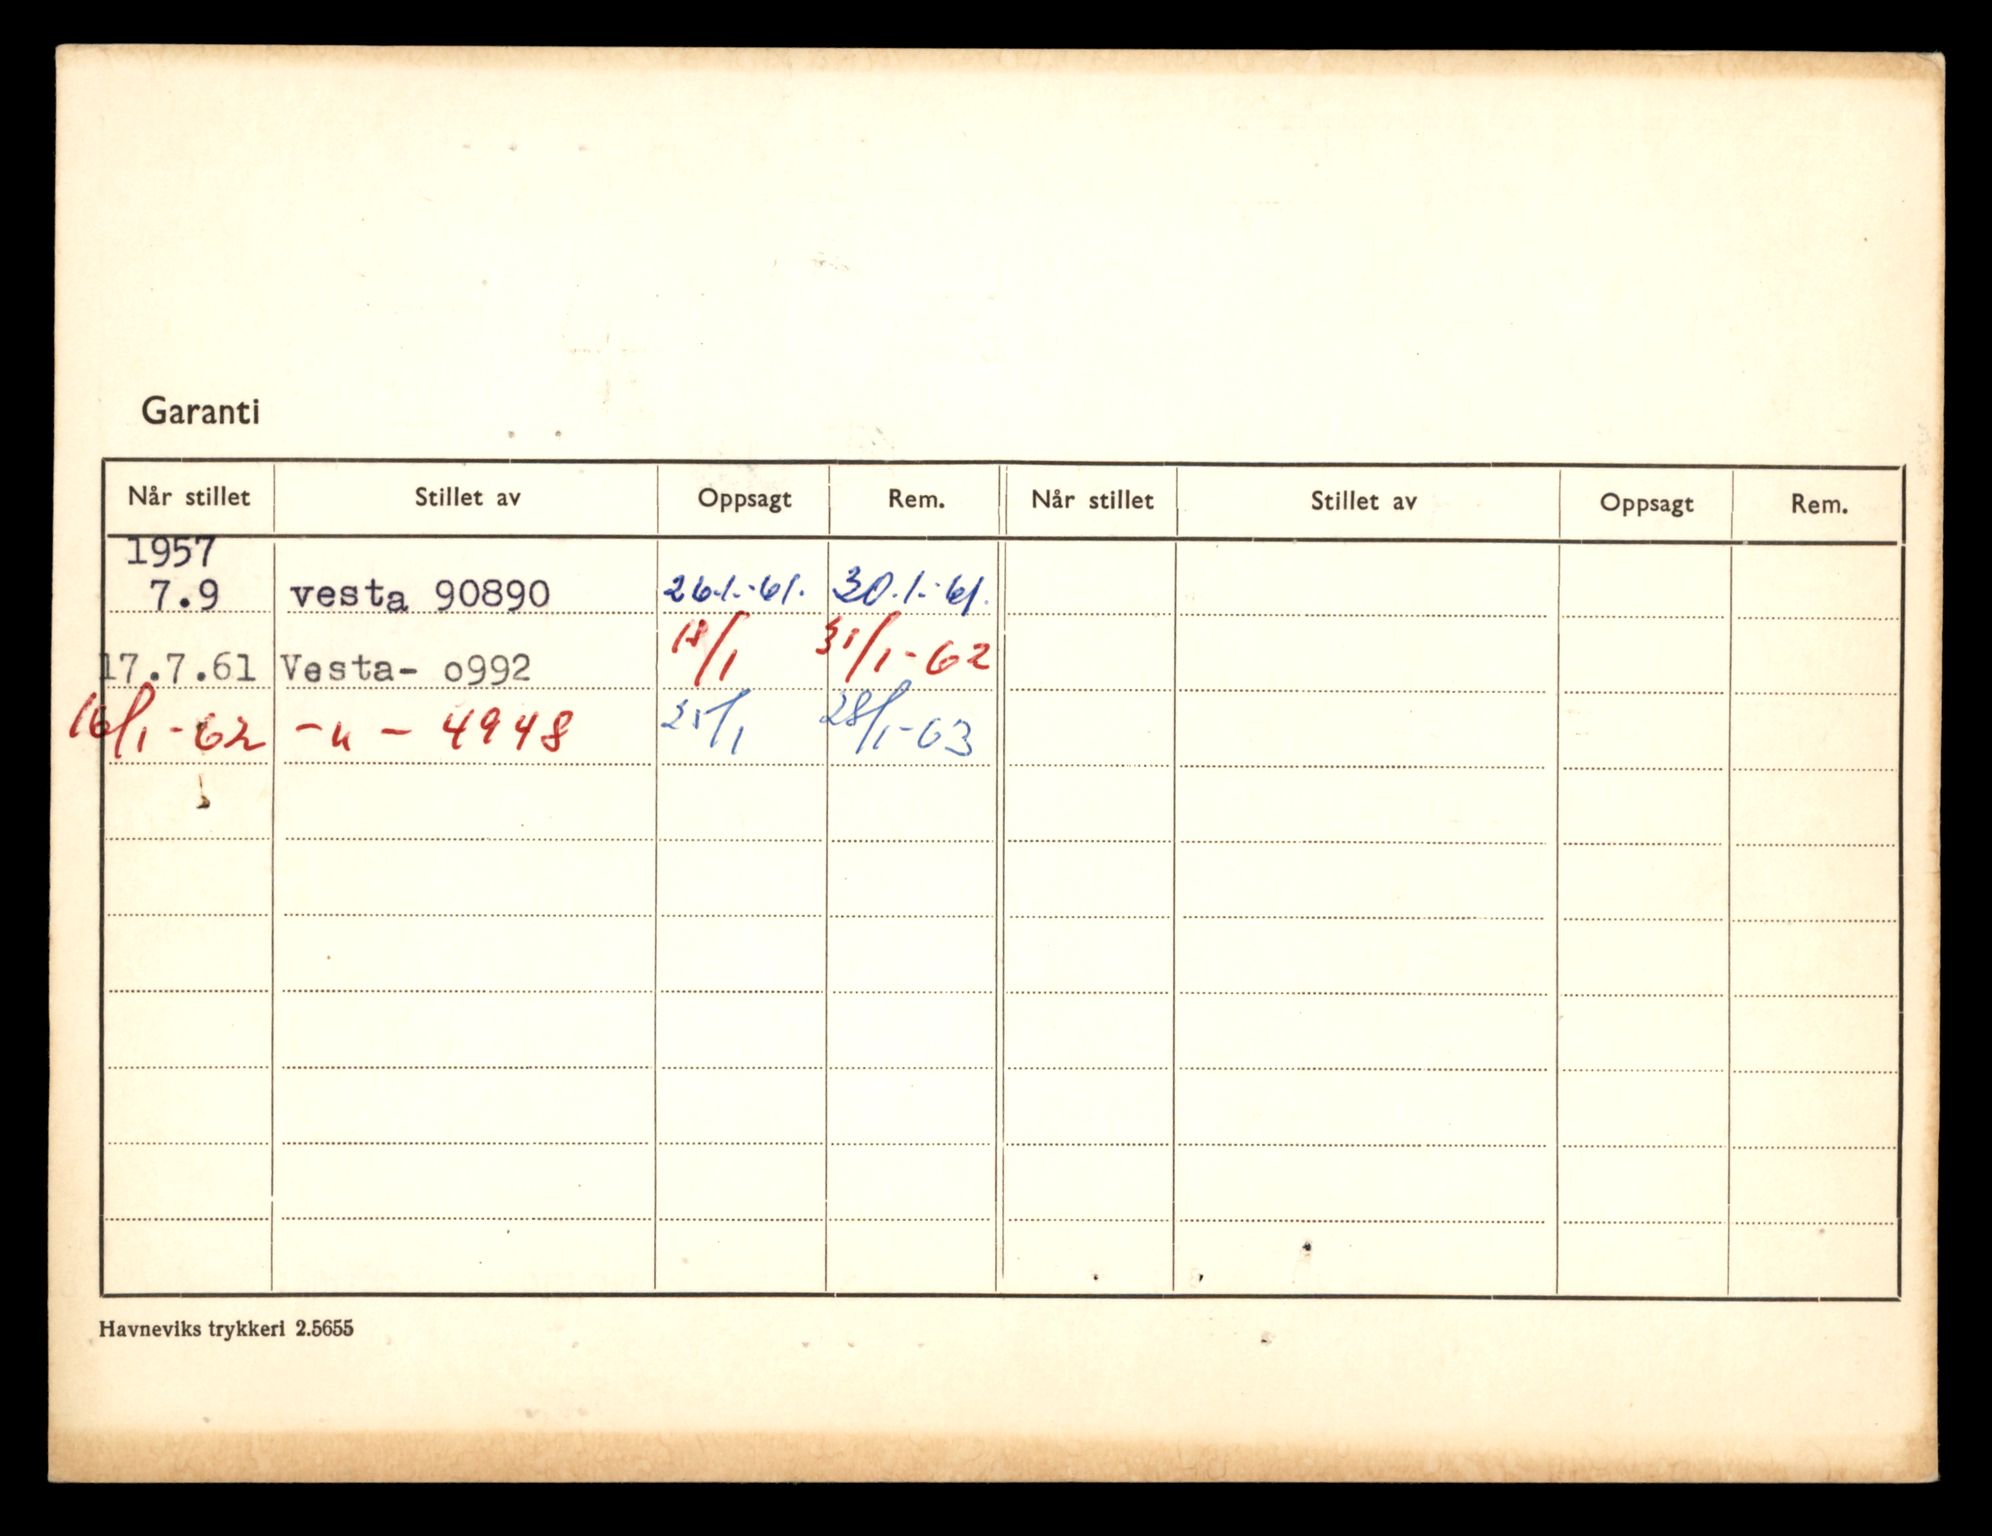 Garanti
Når stillet Stillet av Oppsagt Rem. Når stillet Stillet av Oppsagt Rem.
1957
7.9 vesta 90890 26.1.-61. 30.1.-61.
17.7.61 Vesta- o992 18/1 31/1-62
16/1-62 -"- 4948 25/1 28/1-63
Havneviks trykkeri 2.5655